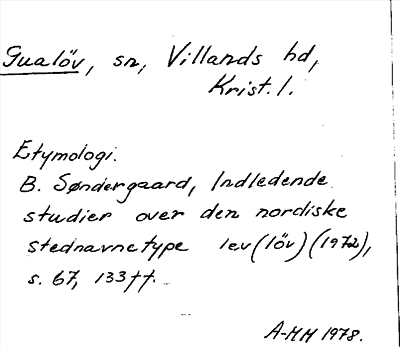 Gualöv, sn, Villands hd,
Krist. l.
Etymologi.
B. Søndergaard, Indledende
studier over den nordiske
stednavnetype lev (löv) (1972),
s. 67, 133 ff.
A-MH 1978.